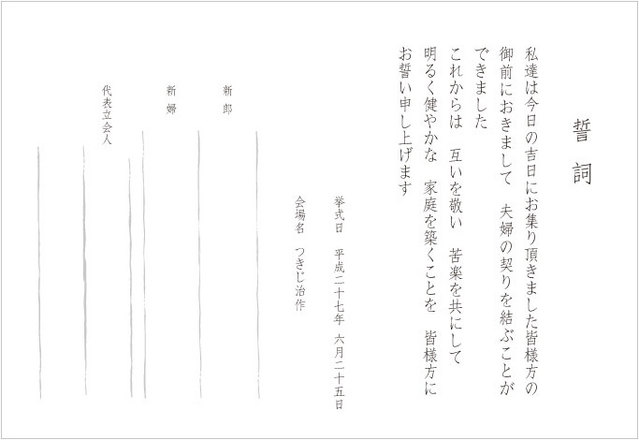 誓詞
私達は今日の吉日にお集り頂きました皆様方の
御前におきまして　夫婦の契りを結ぶことが
できました
これからは　互いを敬い　苦楽を共にして
明るく健やかな　家庭を築くことを　皆様方に
お誓い申し上げます
挙式日　平成二十七年 六月二十五日
会場名　つきじ治作
新郎
新婦
代表立会人